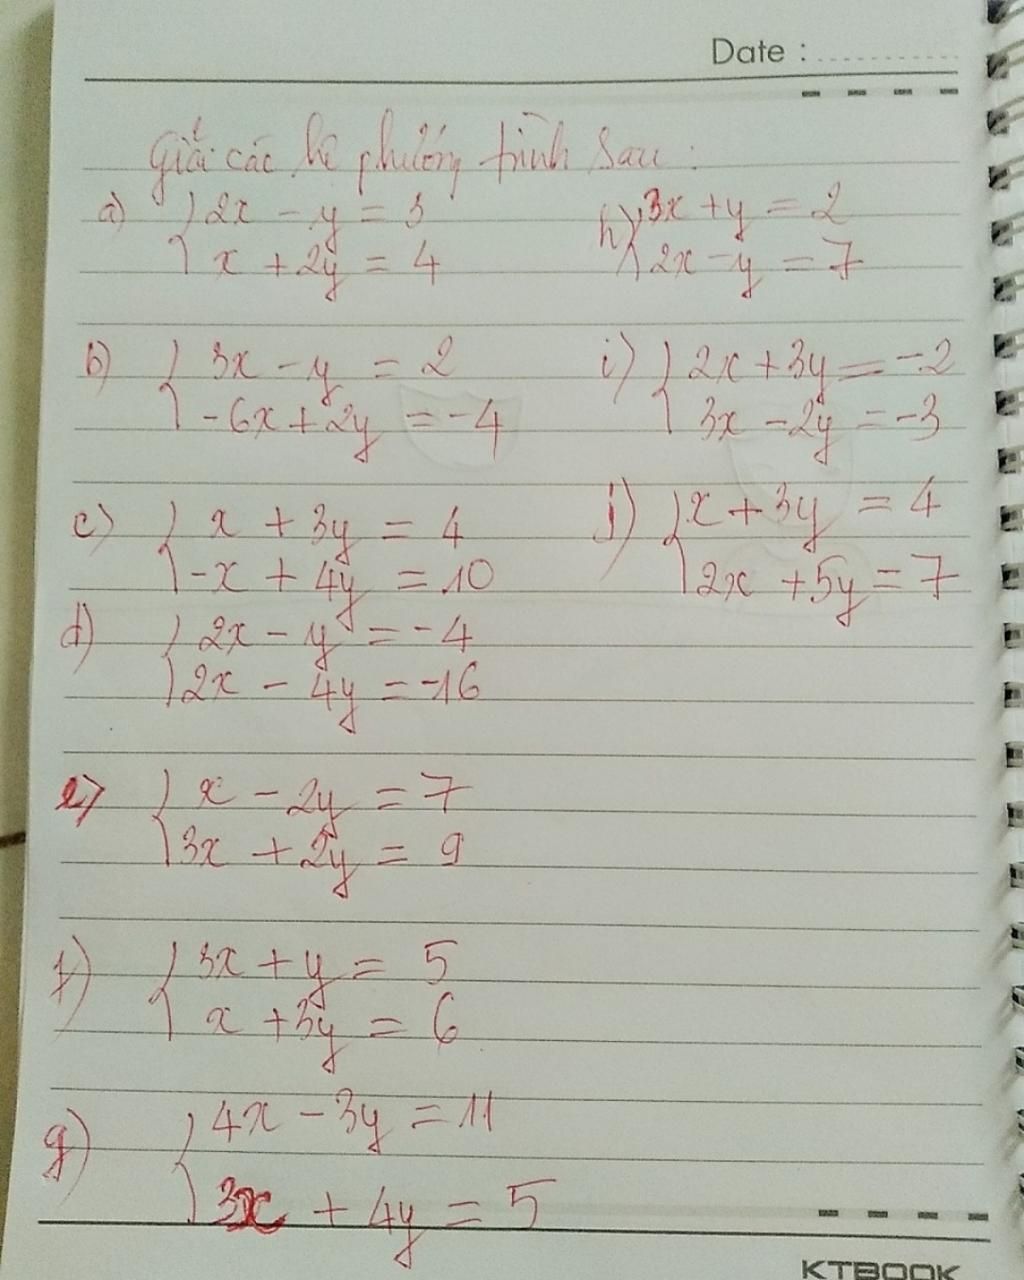 Date :
Giải các hệ phương trình sau :
a) { 2x - y = 3
x + 2y = 4
h) { 3x + y = 2
2x - y = 7
b) { 3x - y = 2
-6x + 2y = -4
i) { 2x + 3y = -2
3x - 2y = -3
c) { x + 3y = 4
-x + 4y = 10
j) { x + 3y = 4
2x + 5y = 7
d) { 2x - y = -4
2x - 4y = -16
e) { x - 2y = 7
3x + 2y = 9
f) { 3x + y = 5
x + 3y = 6
g) { 4x - 3y = 11
3x + 4y = 5
KTBOOK